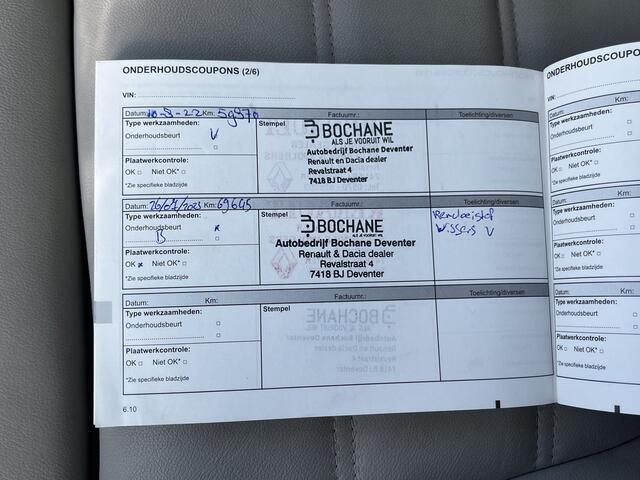 ONDERHOUDSCOUPONS (2/6)
VIN:
Datum: Km: Factuurnr.: Toelichting/diversen
Type werkzaamheden:
Onderhoudsbeurt V
Plaatwerkcontrole:
OK Niet OK*
*Zie specifieke bladzijde
Stempel
BOCHANE
ALS JE VOORUIT WIL
Autobedrijf Bochane Deventer
Renault en Dacia dealer
Revalstraat 4
7418 BJ Deventer
Datum: Km: 69645 Factuurnr.: Toelichting/diversen
Type werkzaamheden:
Onderhoudsbeurt x
B
Plaatwerkcontrole:
OK x Niet OK*
*Zie specifieke bladzijde
Stempel
BOCHANE
ALS JE VOORUIT WIL
Autobedrijf Bochane Deventer
Renault & Dacia dealer
Revalstraat 4
7418 BJ Deventer
Remvloeistof
Wissers V
Datum: Km: Factuurnr.: Toelichting/diversen
Type werkzaamheden:
Onderhoudsbeurt
Plaatwerkcontrole:
OK Niet OK*
*Zie specifieke bladzijde
Stempel
6.10
ONDERHOUDSCOUPONS
VIN:
Datum:
Type werkzaamheden:
Onderhoudsbeurt
Plaatwerkcontrole:
OK Niet OK*
*Zie specifieke bladzijde
Datum:
Type werkzaamheden:
Onderhoudsbeurt
Plaatwerkcontrole:
OK Niet OK*
*Zie specifieke bladzijde
Datum:
Type werkzaamheden:
Onderhoudsbeurt
Plaatwerkcontrole:
OK Niet OK*
*Zie specifieke bladzijde